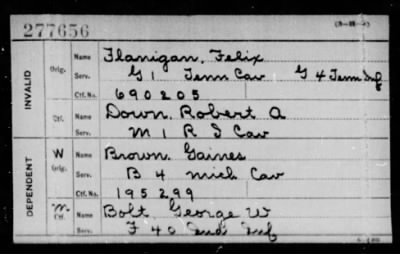 277656
(3-1121)
INVALID
Orig.
Name Flanigan, Felix
Serv. G 1 Tenn Cav G 4 Tenn Inf
Ctf. No. 690205
Ctf.
Name Down, Robert A
Serv. M 1 R I Cav
DEPENDENT
W
Orig.
Name Brown, Gaines
Serv. B 4 Mich Cav
Ctf. No. 195299
M
Ctf.
Name Bolt, George W
Serv. F 40 Ind Inf